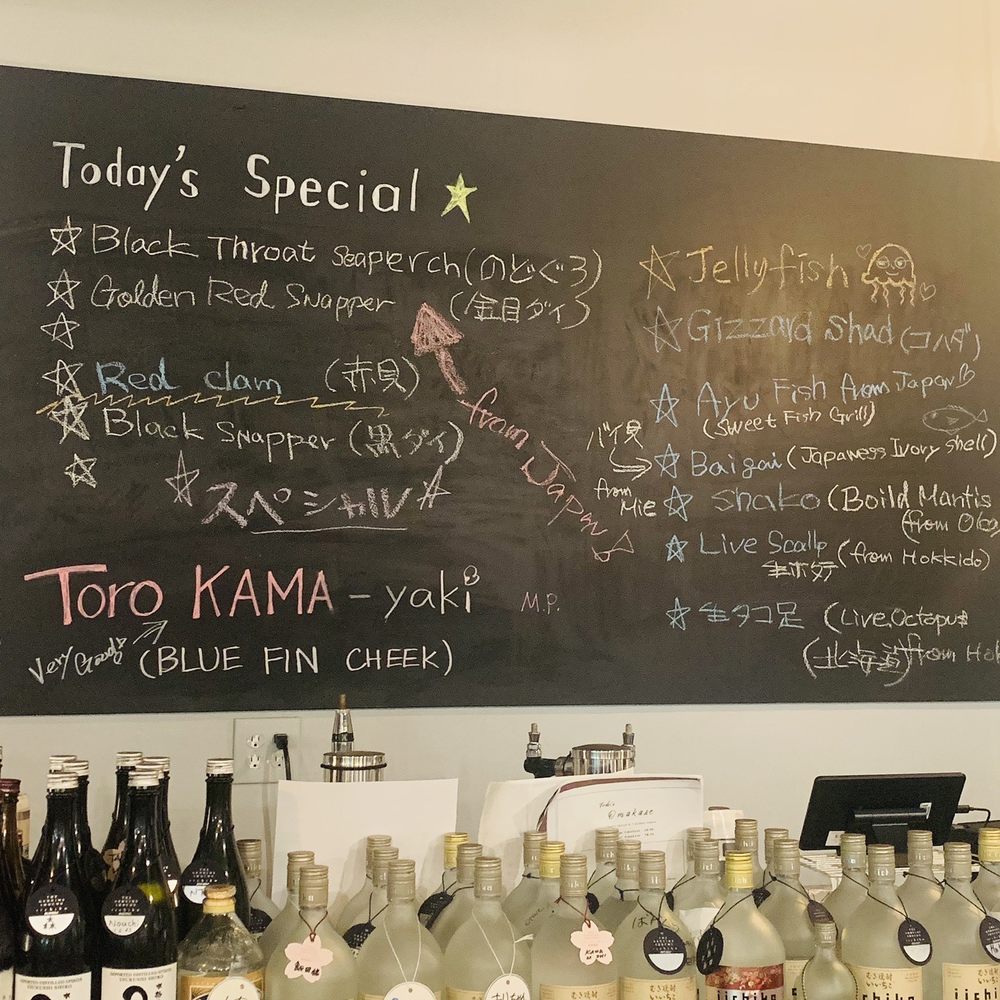 Today's Special
Black Throat Seaperch (のどぐろ)
Golden Red Snapper (金目ダイ)
Red clam (赤貝)
Black Snapper (黒ダイ)
スペシャル
from Japan
Toro KAMA-yaki M.P.
Very Good!
(BLUE FIN CHEEK)
Jellyfish
Gizzard Shad (コハダ)
Ayu Fish from Japan
(Sweet Fish Grill)
バイ貝
Baigai (Japaness Ivory shell)
from Mie
Shako (Boild Mantis
(from
Live Scallp (from Hokkido)
生ホタテ
生タコ足 (Live Octopus
(北海道) from Hok
Omakase
Nouch
KAWA
iichiko
むぎ焼酎
いいちこ
iichiko
むぎ焼酎
いいちこ
iichiko